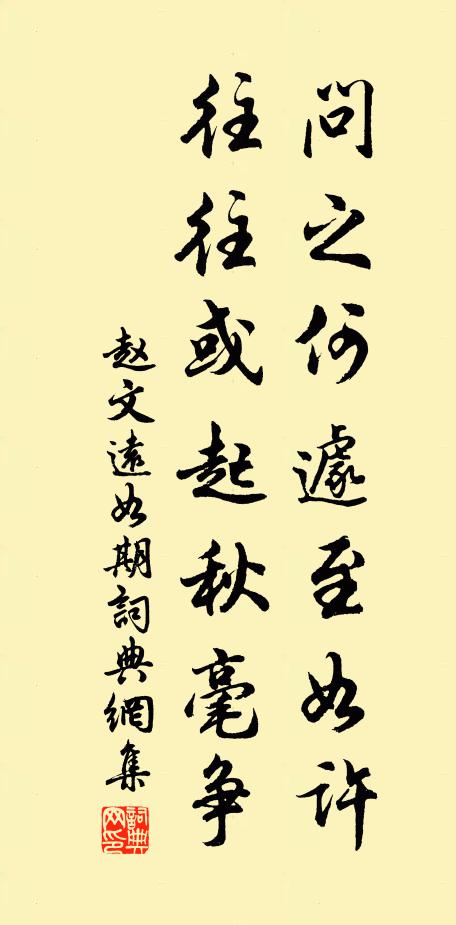 問之何遽至如许
往往或起秋毫争
赵文遠如期詞典網集
詞典网印